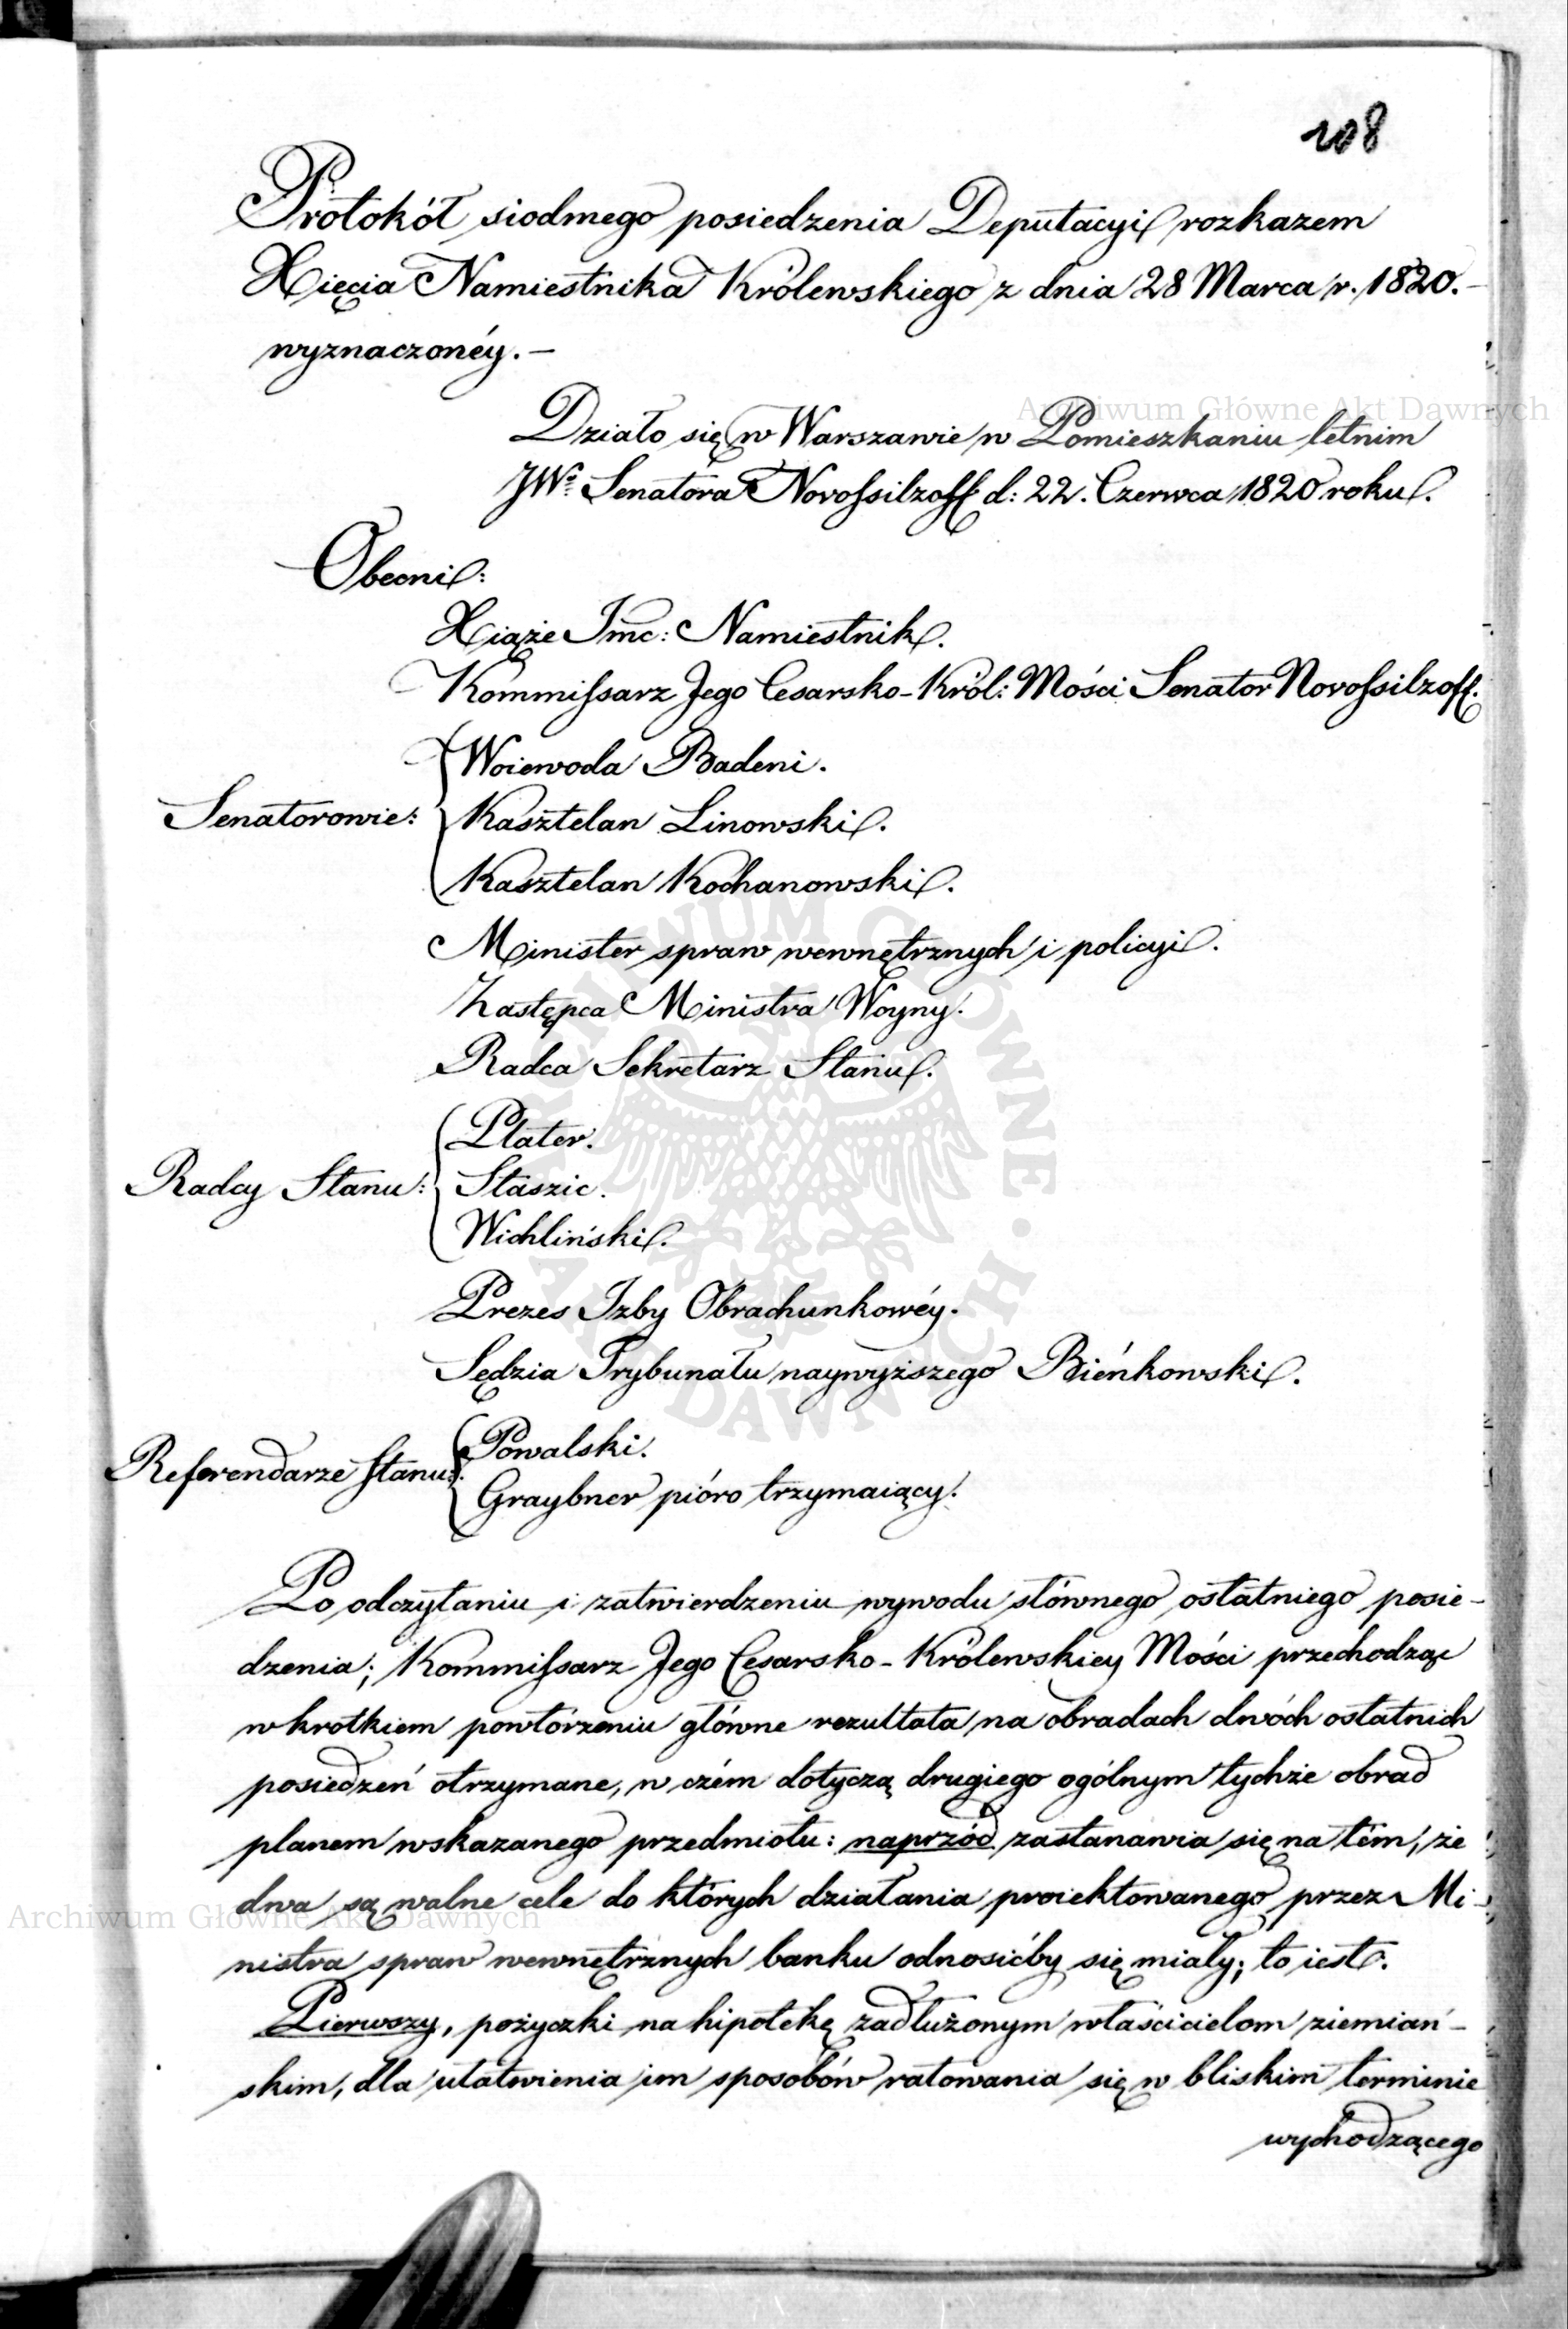 108
Protokół siodmego posiedzenia Deputacyi rozkazem
Xięcia Namiestnika Królewskiego z dnia 28 Marca r. 1820.-
wyznaczonéy.-
Działo się w Warszawie w Pomieszkaniu letnim
JWº Senatora Novossilzoff d: 22. Czerwca 1820 roku.
Obecni:
Xiąże Jmc: Namiestnik.
Kommissarz Jego Cesarsko-Król: Mości Senator Novossilzoff.
Woiewoda Badeni.
Senatorowie: Kasztelan Linowski.
Kasztelan Kochanowski.
Minister spraw wewnętrznych i policyi.
Zastępca Ministra Woyny.
Radca Sekretarz Stanu.
Plater.
Radcy Stanu: Staszic.
Wichliński.
Prezes Izby Obrachunkowéy.
Sędzia Trybunału naywyższego Bieńkowski.
Powalski.
Referendarze Stanu:
Graybner pióro trzymaiący.
Po odczytaniu i zatwierdzeniu wywodu słównego ostatniego posie-
dzenia; Kommissarz Jego Cesarsko-Królewskiey Mości przechodząc
w krotkiem powtórzeniu główne rezultata na obradach dwóch ostatnich
posiedzeń otrzymane, w czém dotyczą drugiego ogólnym tychże obrad
planem wskazanego przedmiotu: naprzód zastanawia się na tém, że
dwa są walne cele do których działania proiektowanego przez Mi-
nistra spraw wewnętrznych banku odnosićby się miały; to iest.
Pierwszy, pożyczki na hipotekę zadłużonym właścicielom ziemiań-
skim, dla ułatwienia im sposobów ratowania się w bliskim terminie
wychodzącego
Archiwum Główne Akt Dawnych
Archiwum Główne Akt Dawnych
ARCHIWUM GŁÓWNE AKT DAWNYCH